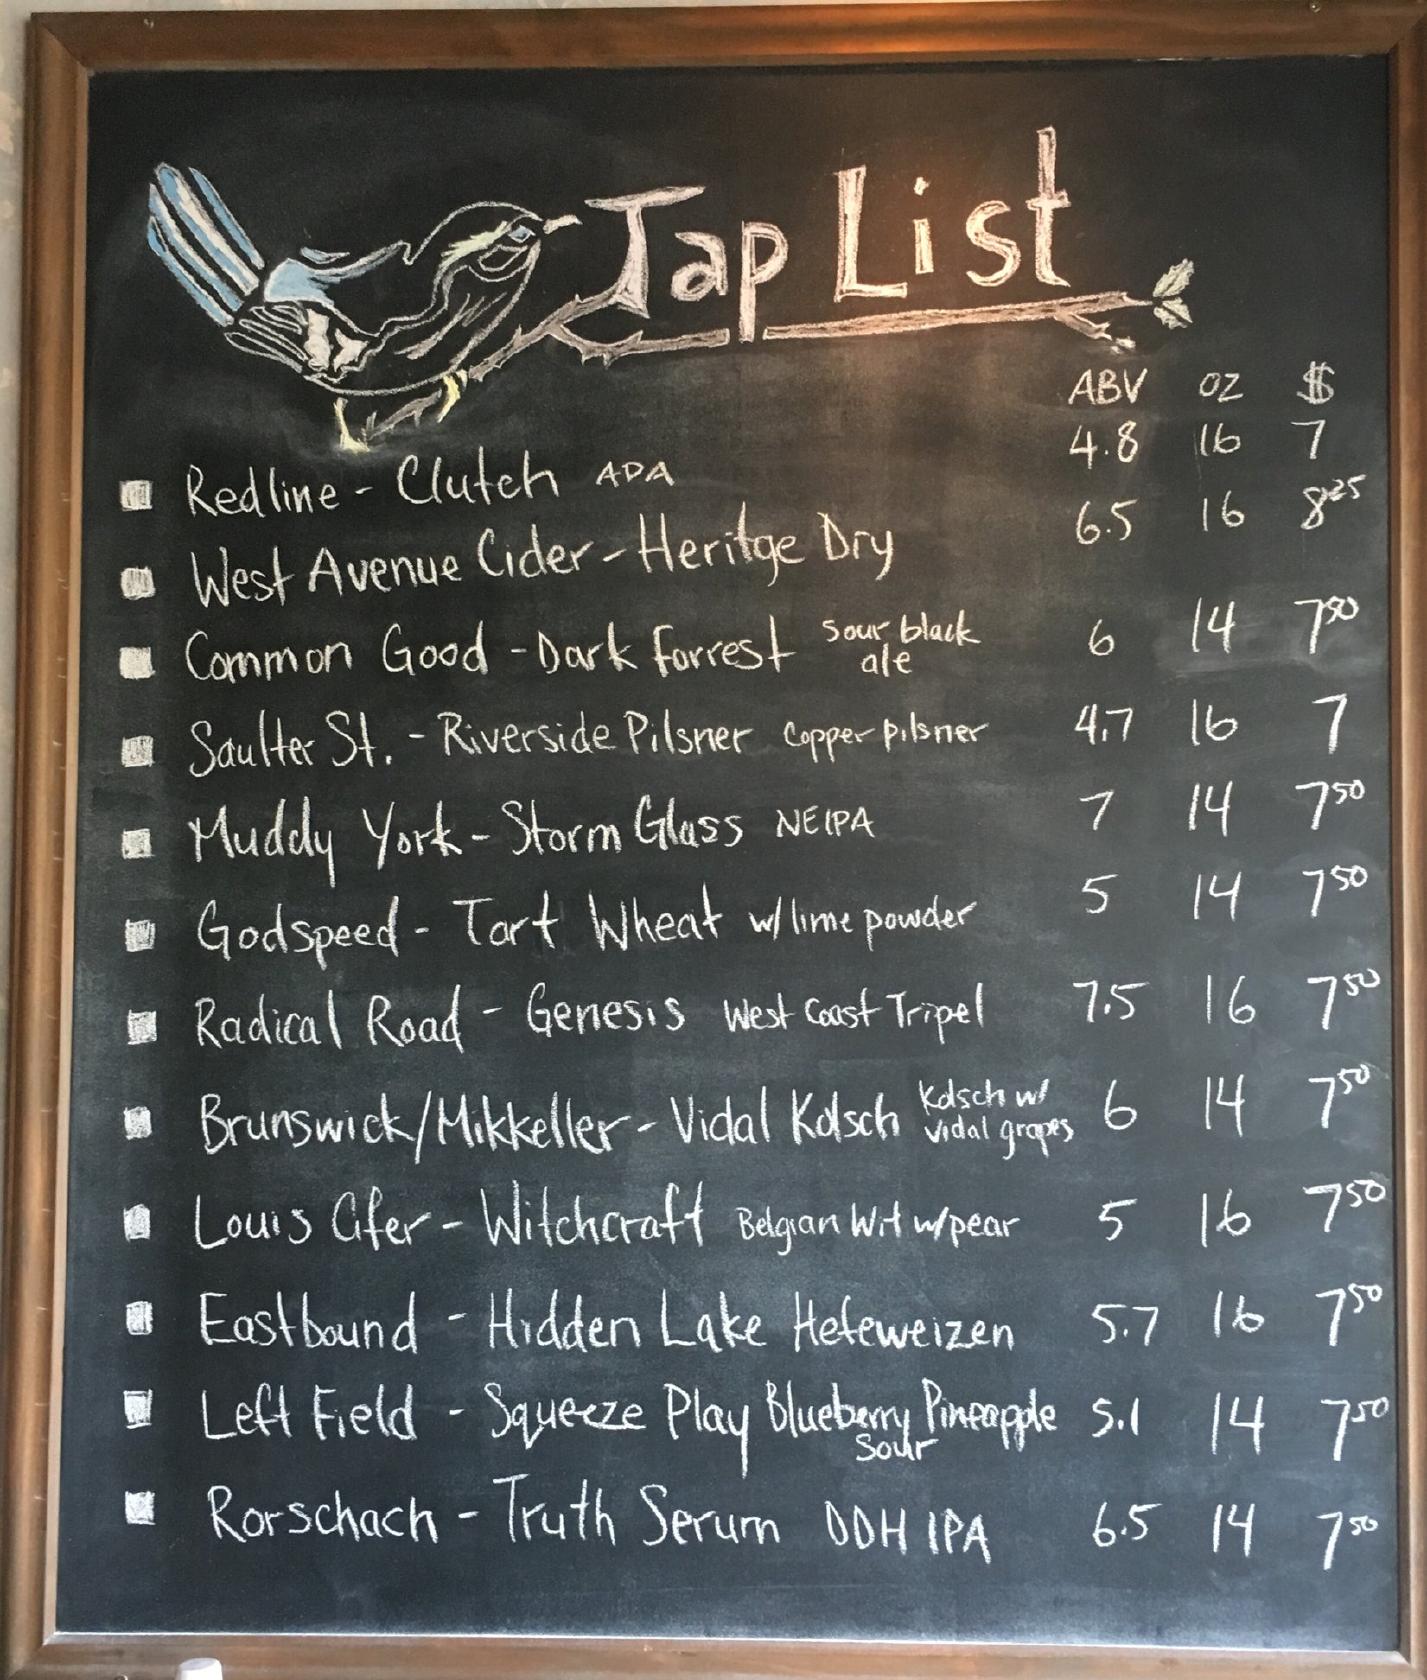 Tap List
ABV OZ $
Redline - Clutch APA 4.8 16 7
West Avenue Cider - Heritge Dry 6.5 16 8.25
Common Good - Dark Forrest sour black ale 6 14 7.50
Saulter St. - Riverside Pilsner copper pilsner 4.7 16 7
Muddy York - Storm Glass NEIPA 7 14 7.50
Godspeed - Tart Wheat w/ lime powder 5 14 7.50
Radical Road - Genesis West Coast Tripel 7.5 16 7.50
Brunswick/Mikkeller - Vidal Kolsch Kolsch w/ vidal grapes 6 14 7.50
Louis Cifer - Witchcraft Belgian Wit w/pear 5 16 7.50
Eastbound - Hidden Lake Hefeweizen 5.7 16 7.50
Left Field - Squeeze Play Blueberry Pineapple Sour 5.1 14 7.50
Rorschach - Truth Serum DDH IPA 6.5 14 7.50